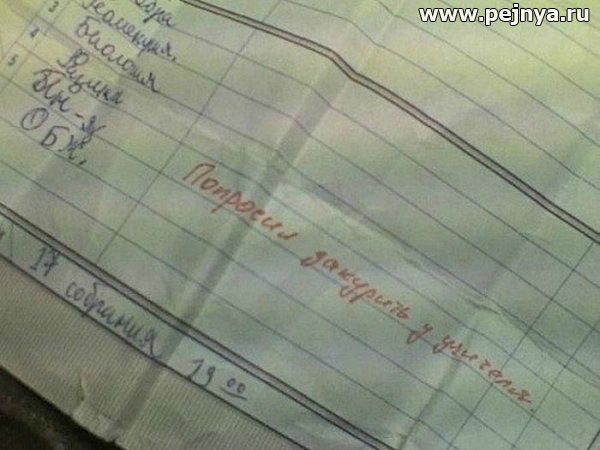 www.pejnya.ru
3 Геометрия.
4 Биология
5 Физика
Ин-яз
ОБЖ.
Попросил закурить у учителя.
17 собрания 19 00